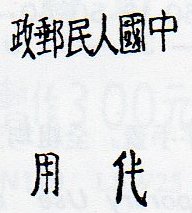 中國人民郵政
代用